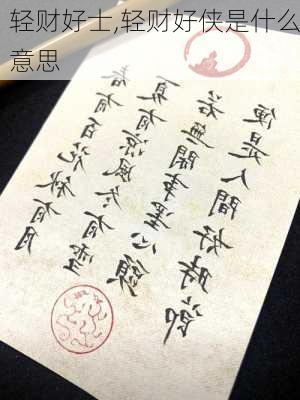 轻财好士,轻财好侠是什么
意思
春有百花秋有月
夏有涼風冬有雪
若無閑事罣心頭
便是人間好時節